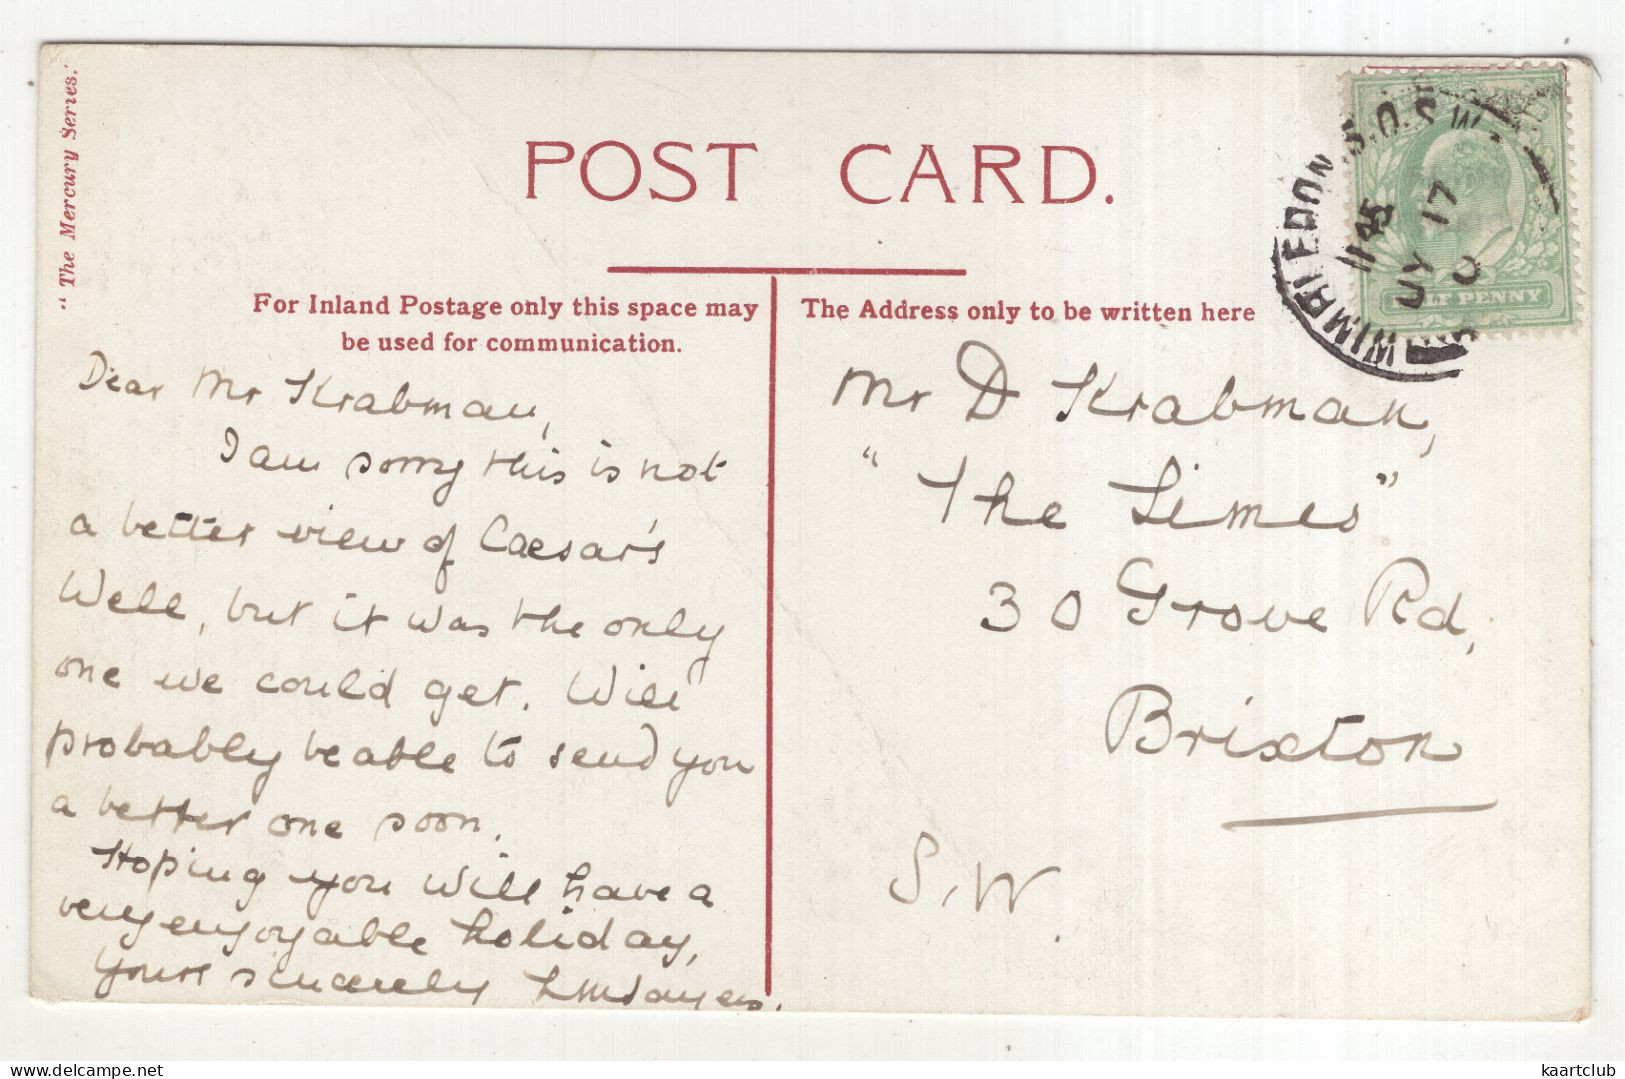 "The Mercury Series."
POST CARD.
For Inland Postage only this space may
be used for communication.
The Address only to be written here
Dear Mr Krabman,
I am sorry this is not
a better view of Caesar's
Well, but it was the only
one we could get. Will
probably be able to send you
a better one soon.
Hoping you will have a
very enjoyable holiday,
Yours sincerely
Mr D Krabman,
"The Limes"
30 Grove Rd,
Brixton
S.W.
WIMBLEDON S.O.S.W.
11 45
17
HALF PENNY
kaartclub